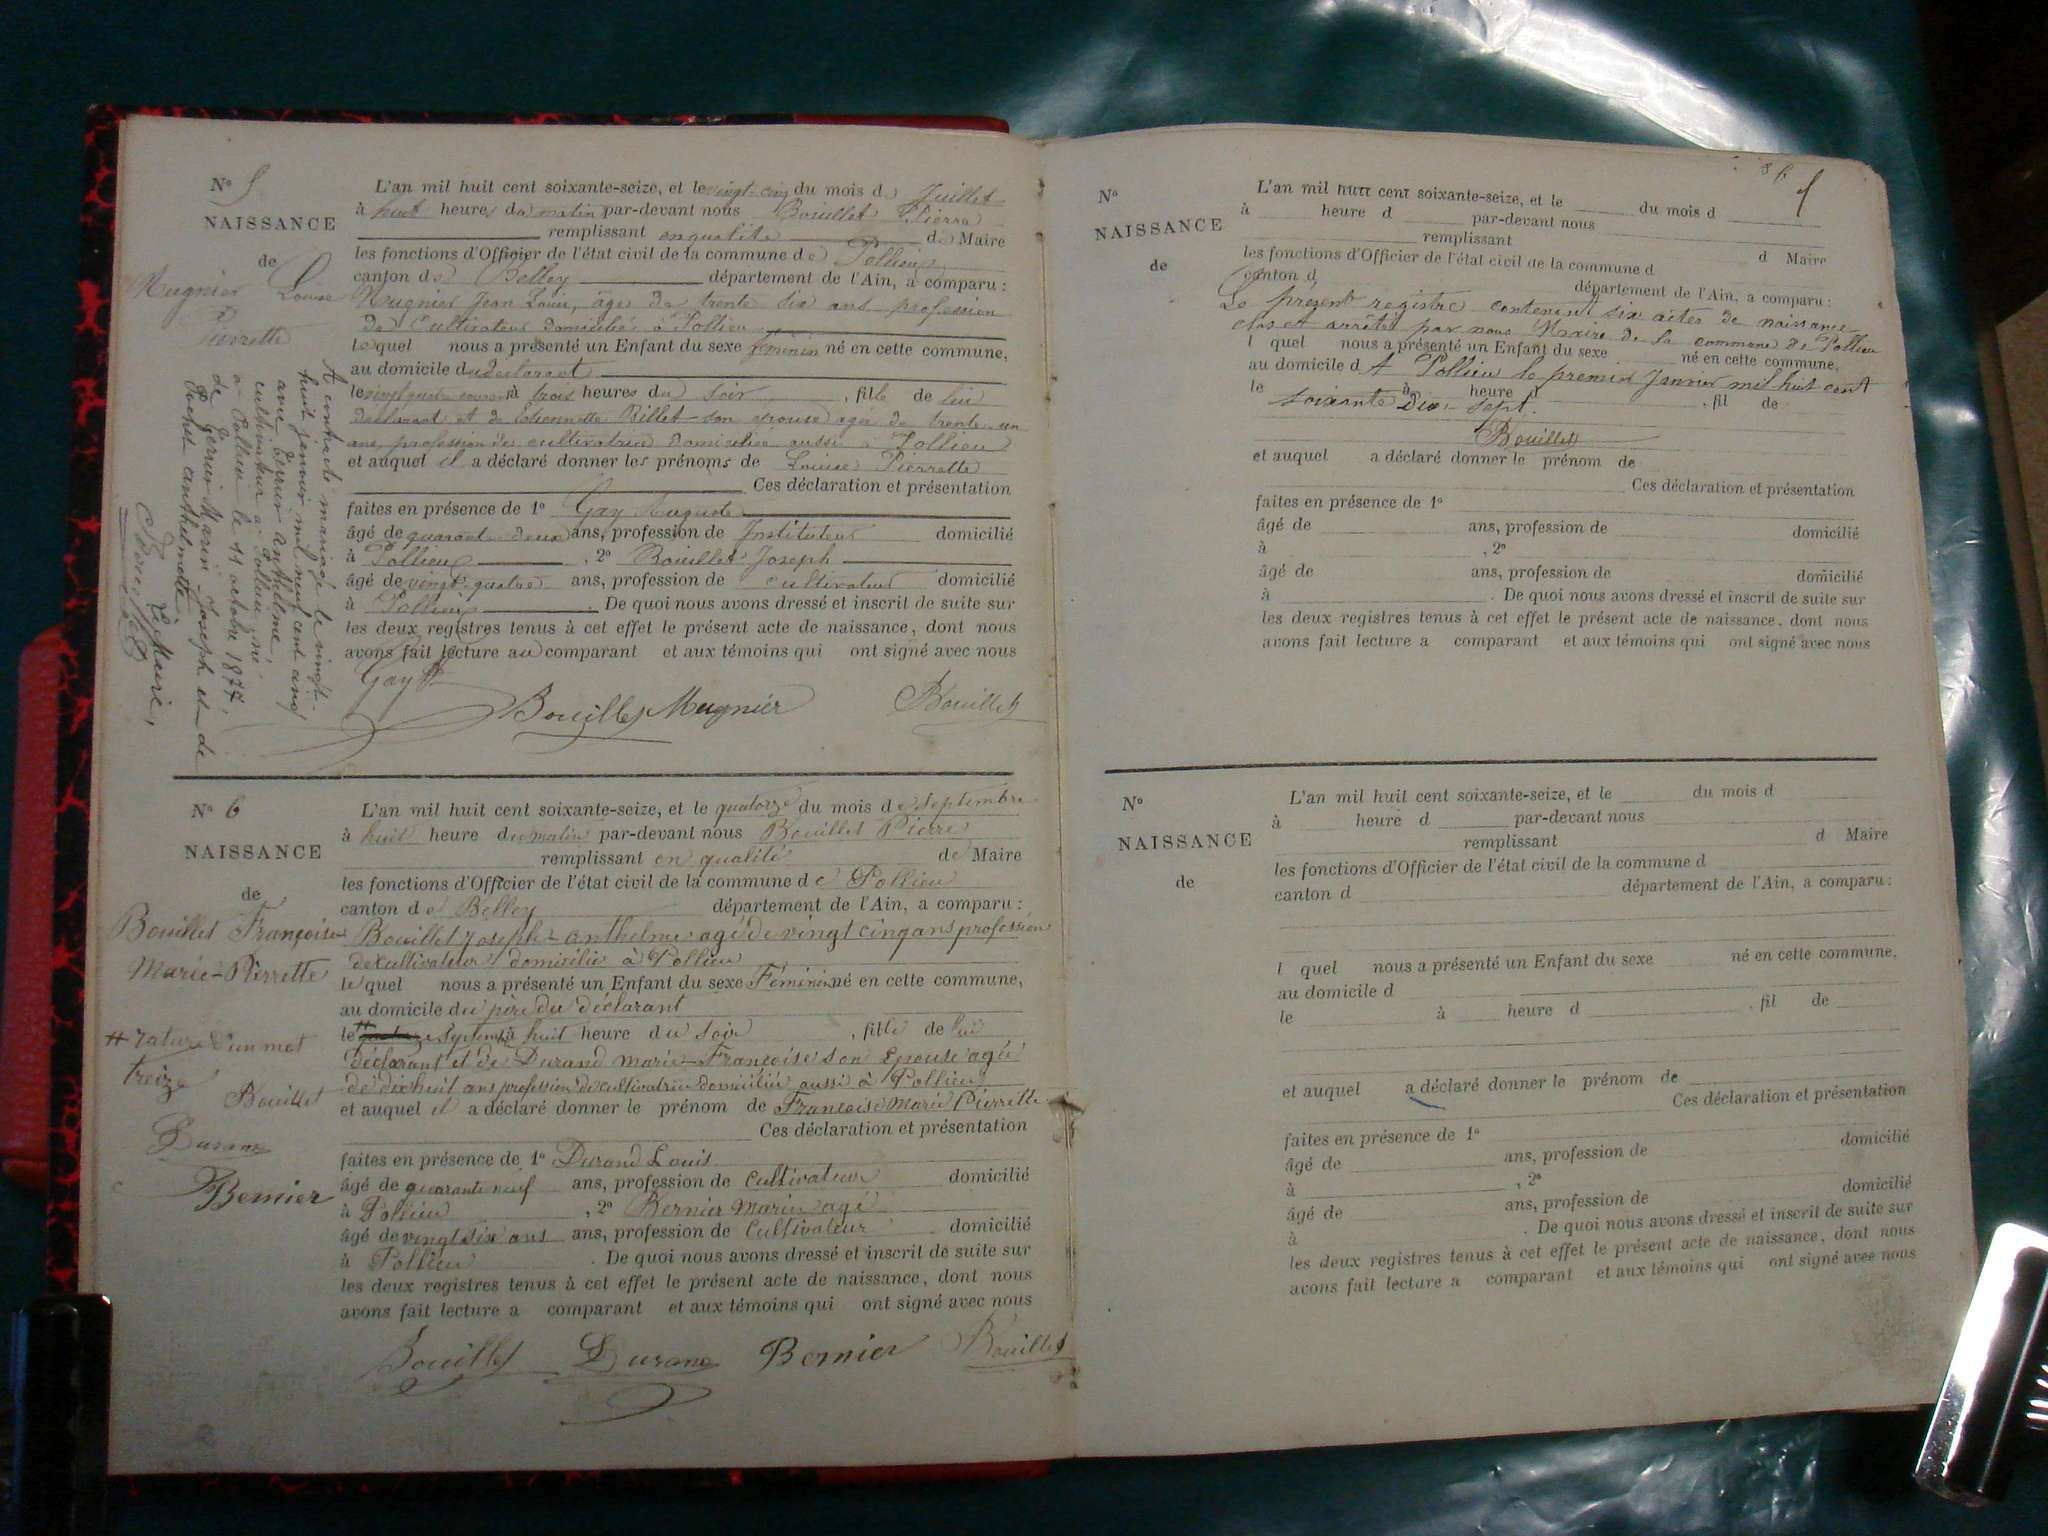 N° 5
NAISSANCE
de
Mugnier Louise
Pierrette
L'an mil huit cent soixante-seize, et le vingt-cinq du mois de Juillet
à huit heures du matin par-devant nous Bouillet Pierre
remplissant en qualité de Maire
les fonctions d'Officier de l'état civil de la commune de Pollieu
canton de Belley département de l'Ain, a comparu :
Mugnier Jean Louis, âgé de trente six ans profession
de cultivateur domicilié à Pollieu
lequel nous a présenté un Enfant du sexe féminin né en cette commune,
au domicile du déclarant
le vingt quatre courant à trois heures du soir , fille de lui
déclarant et de Etiennette Billet son épouse agée de trente un
ans, profession de cultivatrice domiciliée aussi à Pollieu
et auquel il a déclaré donner les prénoms de Louise Pierrette
Ces déclaration et présentation
faites en présence de 1° Gay Auguste
âgé de quarante deux ans, profession de Instituteur domicilié
à Pollieu , 2° Bouillet Joseph
âgé de vingt-quatre ans, profession de cultivateur domicilié
à Pollieu . De quoi nous avons dressé et inscrit de suite sur
les deux registres tenus à cet effet le présent acte de naissance, dont nous
avons fait lecture au comparant et aux témoins qui ont signé avec nous
Gay
Bouillet Mugnier Bouillet
A contracté mariage le vingt-
huit janvier mil neuf cent cinq
avec Bernier Anthelme
cultivateur à Pollieu né
à Pollieu le 11 octobre 1877,
de Bernier Marin Joseph et de
Pochet Anthelmette
Le Maire,
N° 6
NAISSANCE
de
Bouillet Françoise
Marie-Pierrette
# rature d'un mot
treize
Bouillet
Durand
Bernier
L'an mil huit cent soixante-seize, et le quatorze du mois de Septembre
à huit heure du matin par-devant nous Bouillet Pierre
remplissant en qualité de Maire
les fonctions d'Officier de l'état civil de la commune de Pollieu
canton de Belley département de l'Ain, a comparu :
Bouillet Joseph-anthelme agé de vingt cinq ans profession
de cultivateur domicilié à Pollieu
lequel nous a présenté un Enfant du sexe Féminin né en cette commune,
au domicile du père du déclarant
le # septembre à huit heure du soir , fille de lui
déclarant et de Durand marie-Françoise son épouse agée
de dixhuit ans profession de cultivatrice domiciliée aussi à Pollieu
et auquel il a déclaré donner le prénom de Françoise Marie Pierrette
Ces déclaration et présentation
faites en présence de 1° Durand Louis
âgé de quarante neuf ans, profession de Cultivateur domicilié
à Pollieu , 2° Bernier Marin agé
âgé de vingt six ans ans, profession de Cultivateur domicilié
à Pollieu . De quoi nous avons dressé et inscrit de suite sur
les deux registres tenus à cet effet le présent acte de naissance, dont nous
avons fait lecture a comparant et aux témoins qui ont signé avec nous
Bouillet Durand Bernier Bouillet
N°
NAISSANCE
de
L'an mil huit cent soixante-seize, et le du mois d
à heure d par-devant nous
remplissant d Maire
les fonctions d'Officier de l'état civil de la commune d
canton d département de l'Ain, a comparu :
Le présent registre contenant six actes de naissance
clos et arrêté par nous Maire de la commune de Pollieu
l quel nous a présenté un Enfant du sexe né en cette commune,
au domicile d A Pollieu le premier Janvier mil huit cent
le à heure , fil de
soixante Dix-sept.
Bouillet
et auquel a déclaré donner le prénom de
Ces déclaration et présentation
faites en présence de 1°
âgé de ans, profession de domicilié
à , 2°
âgé de ans, profession de domicilié
à . De quoi nous avons dressé et inscrit de suite sur
les deux registres tenus à cet effet le présent acte de naissance, dont nous
avons fait lecture a comparant et aux témoins qui ont signé avec nous
N°
NAISSANCE
de
L'an mil huit cent soixante-seize, et le du mois d
à heure d par-devant nous
remplissant d Maire
les fonctions d'Officier de l'état civil de la commune d
canton d département de l'Ain, a comparu :
l quel nous a présenté un Enfant du sexe né en cette commune,
au domicile d
le à heure d , fil de
et auquel a déclaré donner le prénom de
Ces déclaration et présentation
faites en présence de 1°
âgé de ans, profession de domicilié
à , 2°
âgé de ans, profession de domicilié
à . De quoi nous avons dressé et inscrit de suite sur
les deux registres tenus à cet effet le présent acte de naissance, dont nous
avons fait lecture a comparant et aux témoins qui ont signé avec nous